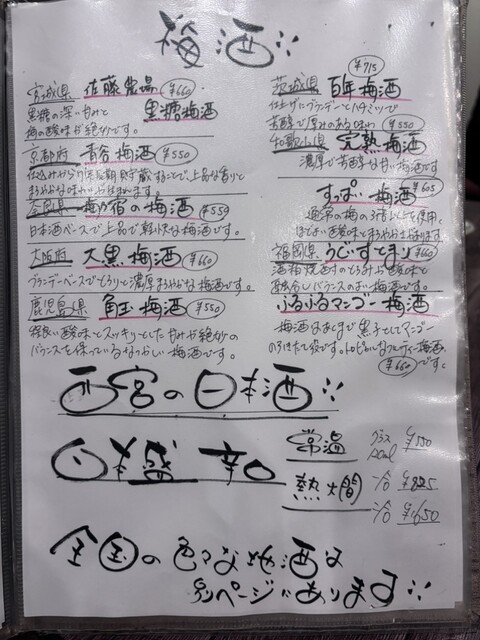 梅酒
宮城県 佐藤農場 ¥660
黒糖の深い甘みと 黒糖梅酒
梅の酸味が絶妙です。
京都府 青谷梅酒 ¥550
仕込みから長期貯蔵することで、上品な香りと
まろやかな味わい
梅乃宿の梅酒 ¥550
日本酒ベースで上品で軽快な梅酒です。
大阪府 大黒梅酒 ¥660
ブランデーベースでとろりと濃厚まろやかな梅酒です。
鹿児島県 角玉梅酒 ¥550
程良い酸味とスッキリとした甘みが絶妙の
バランスを保っているなつかしい梅酒です。
茨城県 百年梅酒 ¥715
仕上げにブランデーとハチミツで
芳醇で厚みのある味わい ¥550
和歌山県 完熟梅酒
濃厚で芳醇な甘い梅酒です
すっぱい梅酒 ¥605
通常の梅の3倍以上を使用、
福岡県 うぐいすとまり ¥660
酒粕焼酎のとろみが酸味と
融合しバランスのよい梅酒です。
ふるふるマンゴー梅酒
梅酒はあくまで黒子としてマンゴー
の引きたて役です。トロピカルなフルーティー梅酒
です。 ¥660
西宮の日本酒
日本盛 辛口
常温 グラス ¥550
熱燗 小 ¥825
¥1650
全国の色々な地酒は
別ページにあります